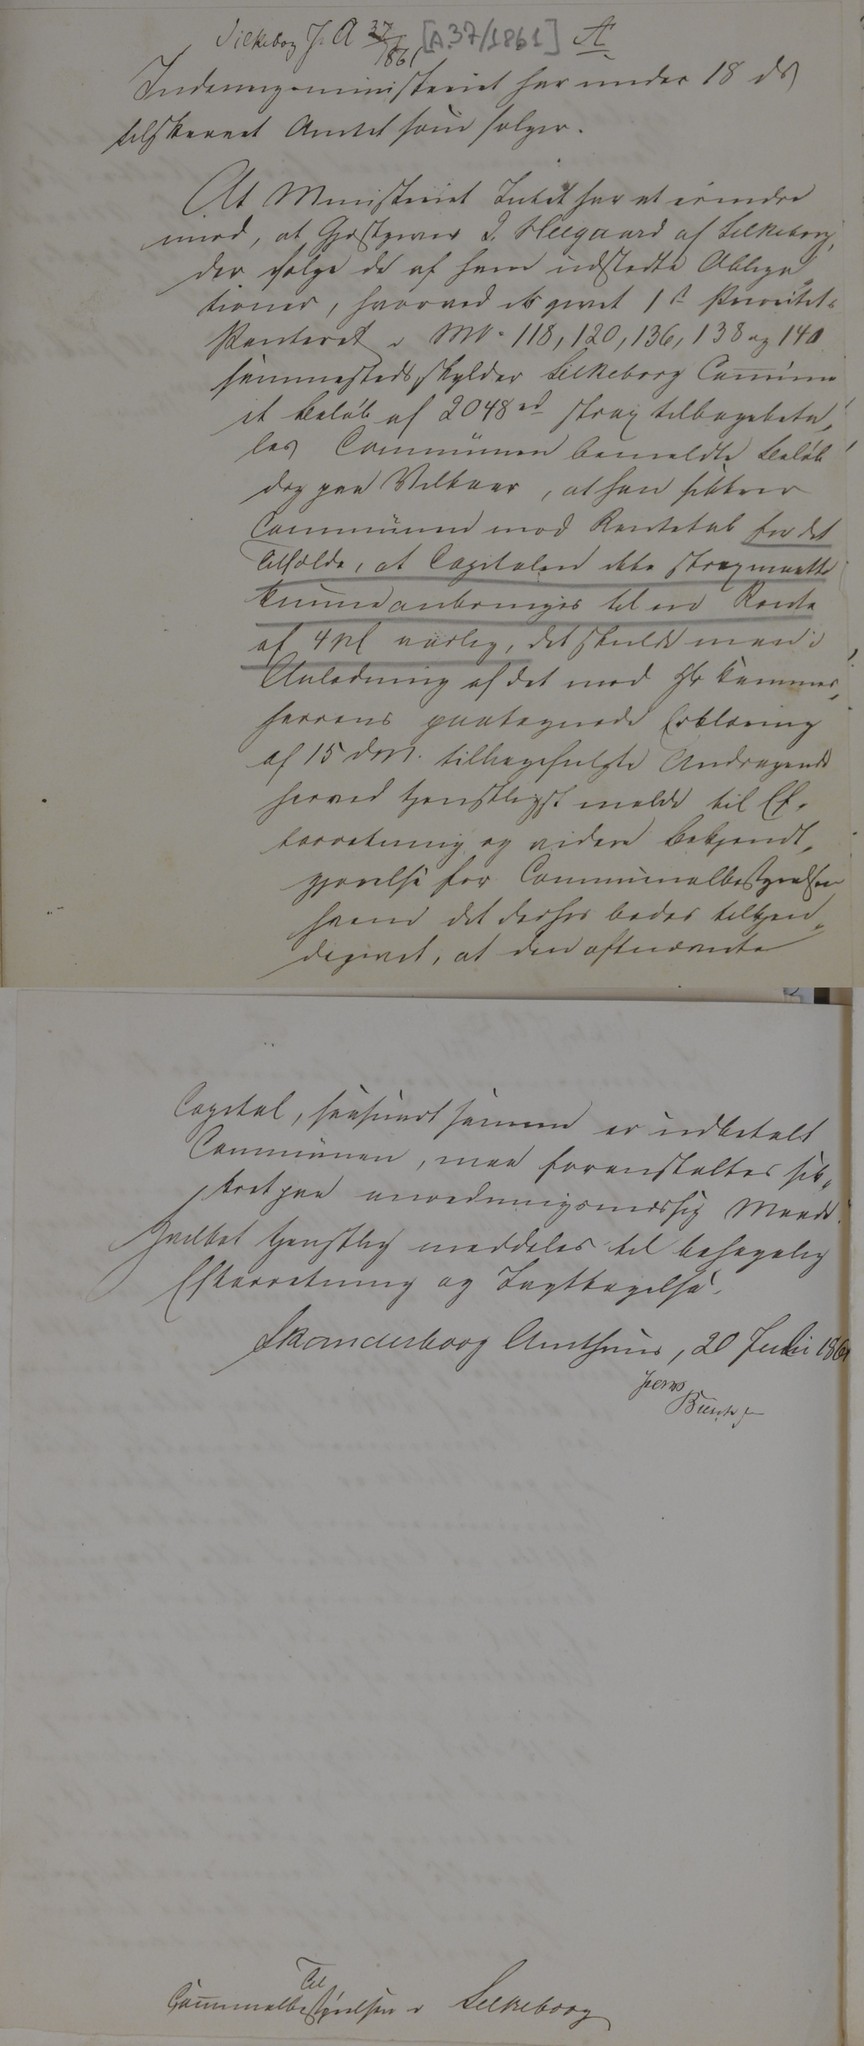 Silkeborg J. A 37/1861 [A.37/1861] A
Indenrigsministeriet har under 18 ds
tilskrevet Amtet som følger.
At Ministeriet Intet har at erindre
imod, at Gjæstgiver J. Heegaard af Silkeborg,
der ifølge de af ham udstedte Obliga„
tioner, hvorved er givet 1st Prioritets
Panteret i M N. 118, 120, 136, 138 og 140
sammesteds, skylder Silkeborg Commune
et Beløb af 2048 rd strax tilbagebeta„
les Communen bemeldte Beløb
dog paa Vilkaar, at han sikkrer
Communen mod Rentetab for det
Tilfælde, at Capitalen ikke strax maatte
kunne anbringes til en Rente
af 4 pCt aarlig, det skulde man i
Anledning af det med Hr Kammer„
herrens paategnede Erklæring
af 15 d.M. tilbagefulgte Andragende
herved tjenstligst melde til Ef„
terretning og videre Bekjendt„
gjørelse for Communalbestyrelsen
hvem det derhos bedes tilkjen„
degivet, at den ofte nævnte
Capital, saasnart samme er indbetalt
Communen, maa foranstaltes sik„
kret paa anordningsmæssig Maade.
Hvilket tjenstlig meddeles til behagelig
Efterretning og Iagttagelse.
Skanderborg Amthuus, 20 Juli 1861
Til
Communalbestyrelsen i Silkeborg